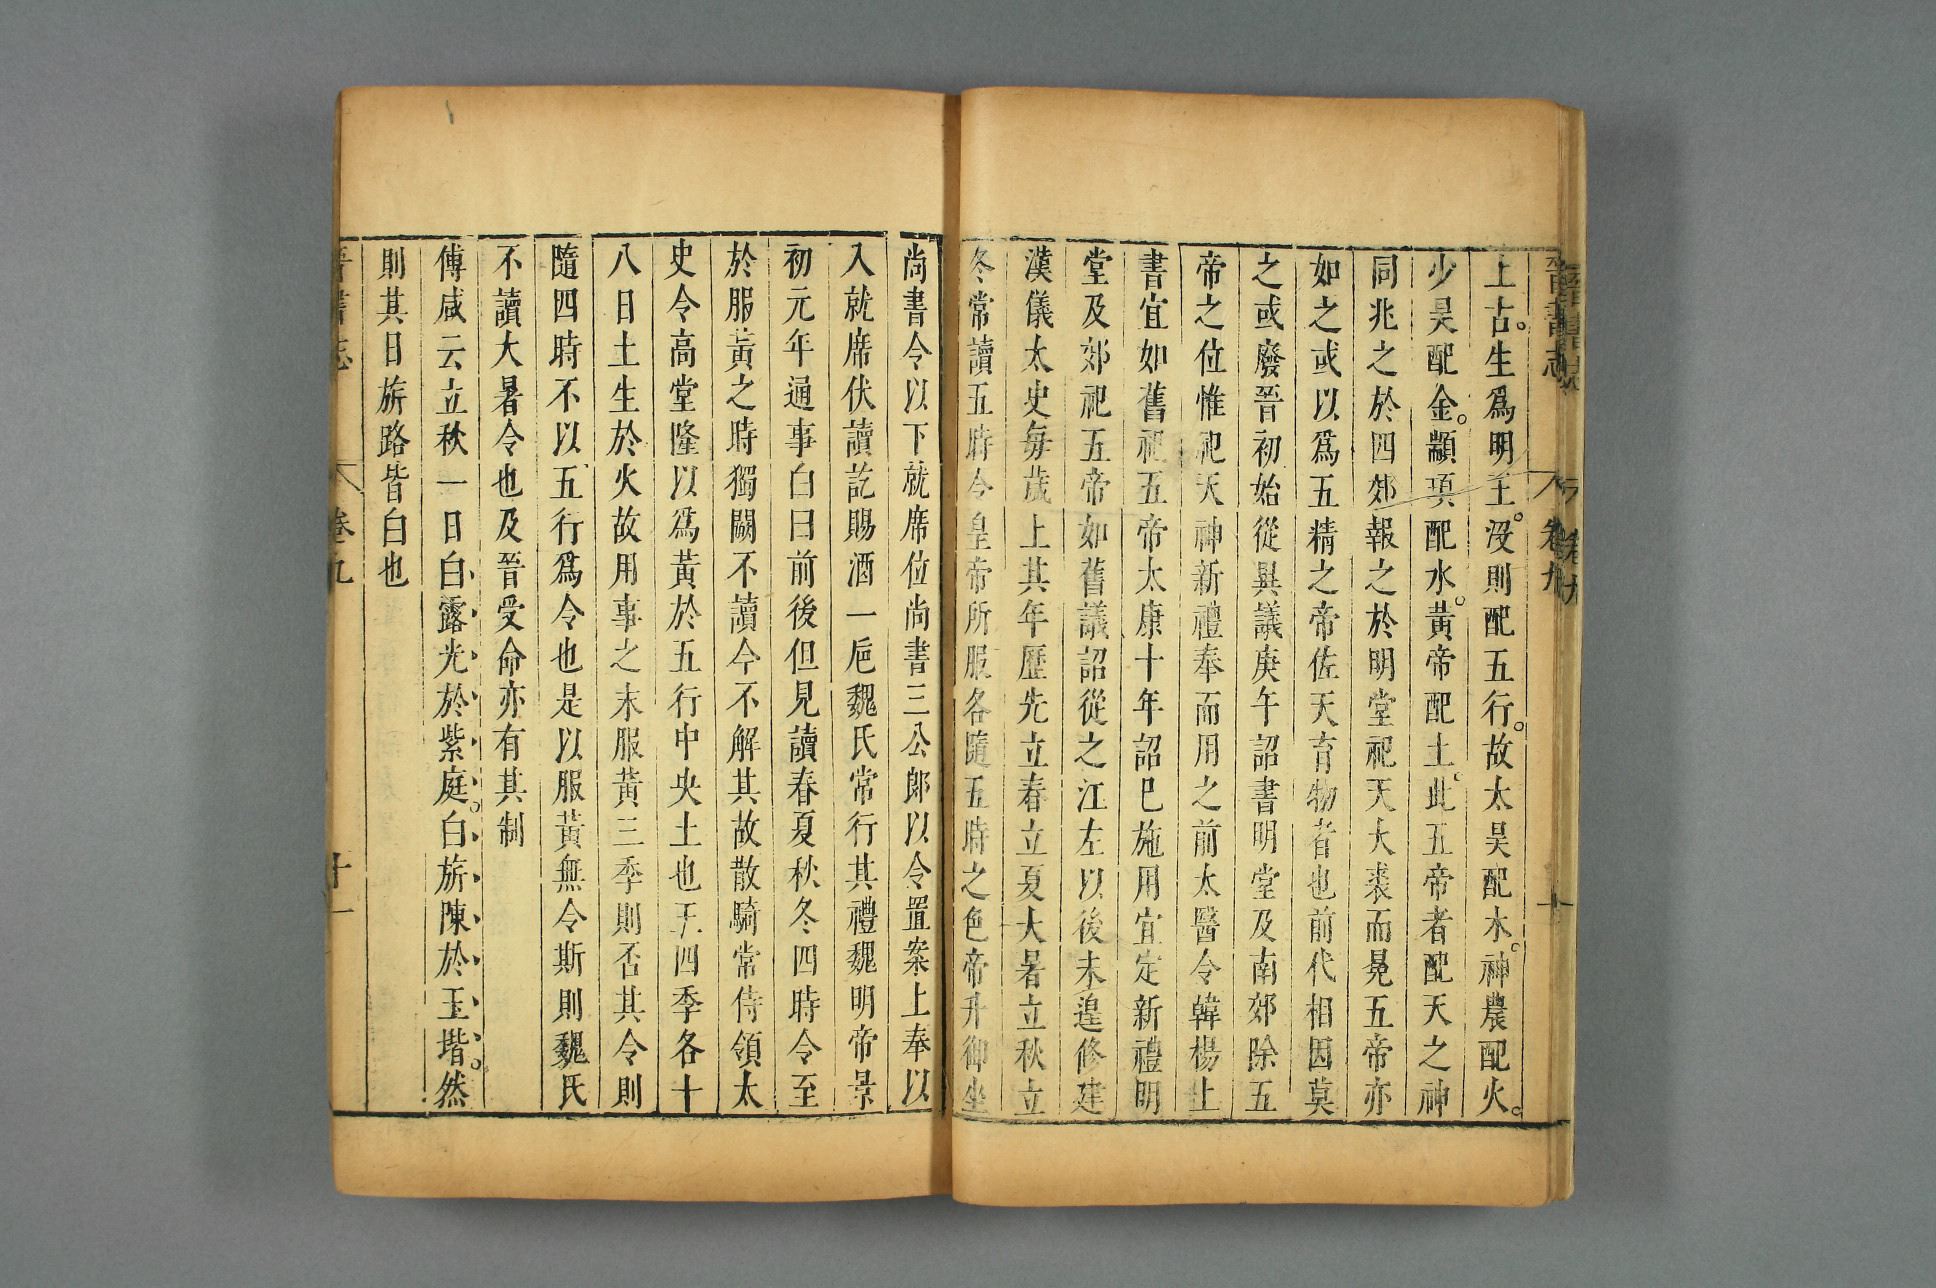 晉書志 卷九 十
上古。生爲明王。沒則配五行。故太昊配木。神農配火。
少昊配金。顓頊配水。黃帝配土。此五帝者配天之神
同兆之於四郊報之於明堂祀天大裘而冕五帝亦
如之或以爲五精之帝佐天育物者也前代相因莫
之或廢晉初始從異議庚午詔書明堂及南郊除五
帝之位惟祀天神新禮奉而用之前太醫令韓楊上
書宜如舊祀五帝太康十年詔已施用宜定新禮明
堂及郊祀五帝如舊議詔從之江左以後未遑修建
漢儀太史每歲上其年歷先立春立夏大暑立秋立
冬常讀五時令皇帝所服各隨五時之色帝升御坐
尚書令以下就席位尚書三公郎以令置案上奉以
入就席伏讀訖賜酒一巵魏氏常行其禮魏明帝景
初元年通事白曰前後但見讀春夏秋冬四時令至
於服黃之時獨闕不讀今不解其故散騎常侍領太
史令高堂隆以爲黃於五行中央土也王四季各十
八日土生於火故用事之末服黃三季則否其令則
隨四時不以五行爲令也是以服黃無令斯則魏氏
不讀大暑令也及晉受命亦有其制
傅咸云立秋一日白露光於紫庭。白旂陳於玉堦。然
則其日旂路皆白也
晉書志 卷九 十一